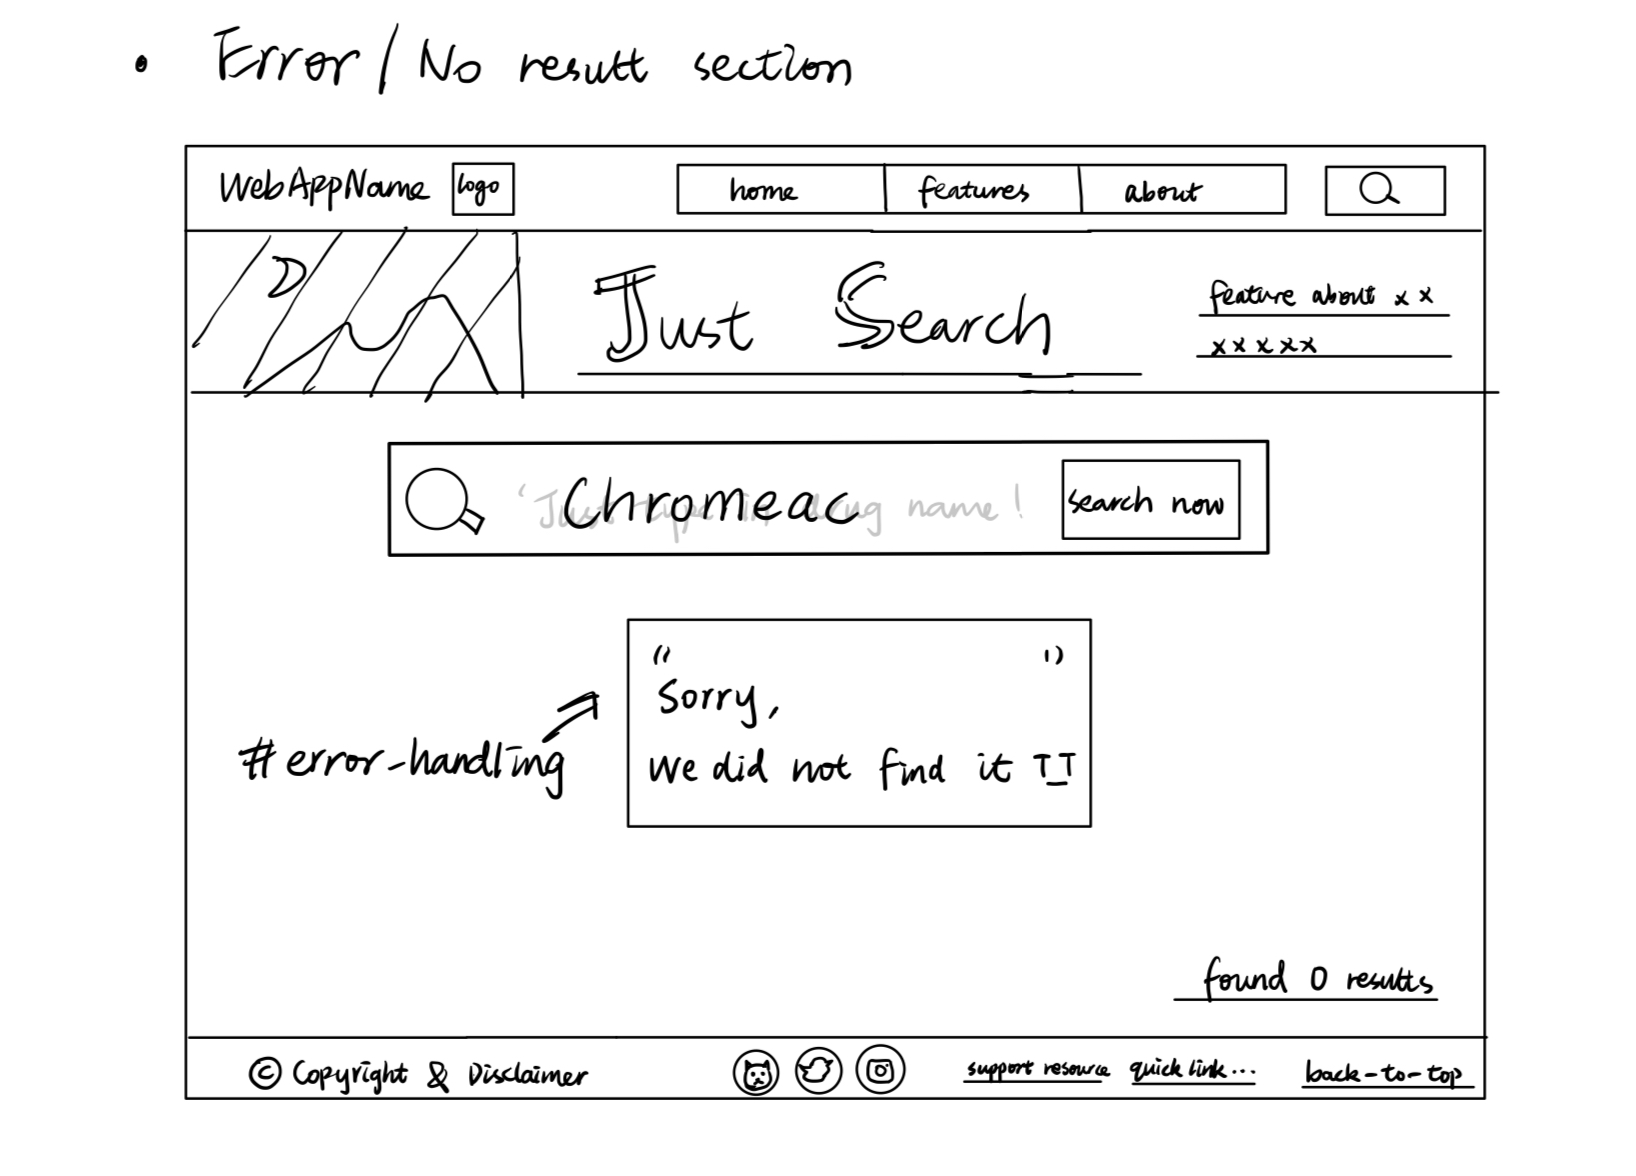 • Error / No result section
WebAppName logo home features about
Just Search
feature about x x
x x x x x
'Just type in drug name!
Chromeac
search now
"  "
Sorry,
We did not find it T_T
#error-handling
found 0 results
© Copyright & Disclaimer support resource quick link... back-to-top